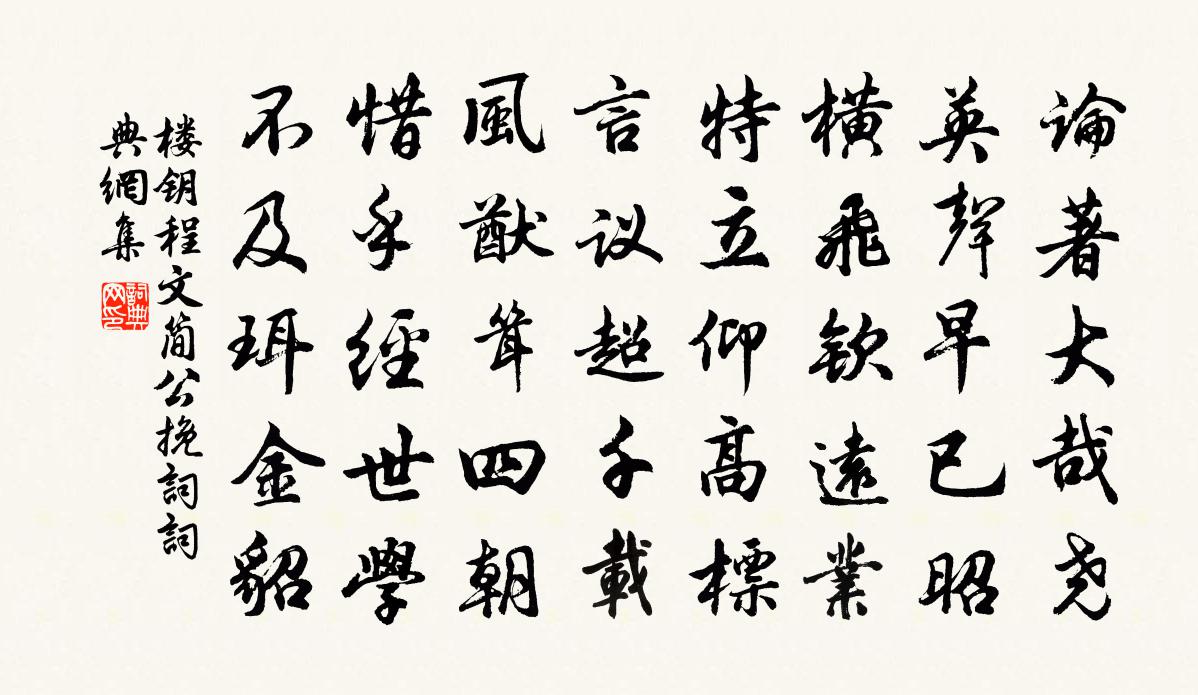 論著大哉尧
英聲早已昭
橫飛欽遠業
特立仰高標
言议超千載
風猷耸四朝
惜乎經世學
不及珥金貂
楼钥程文简公挽詞詞
典網集
詞典网印